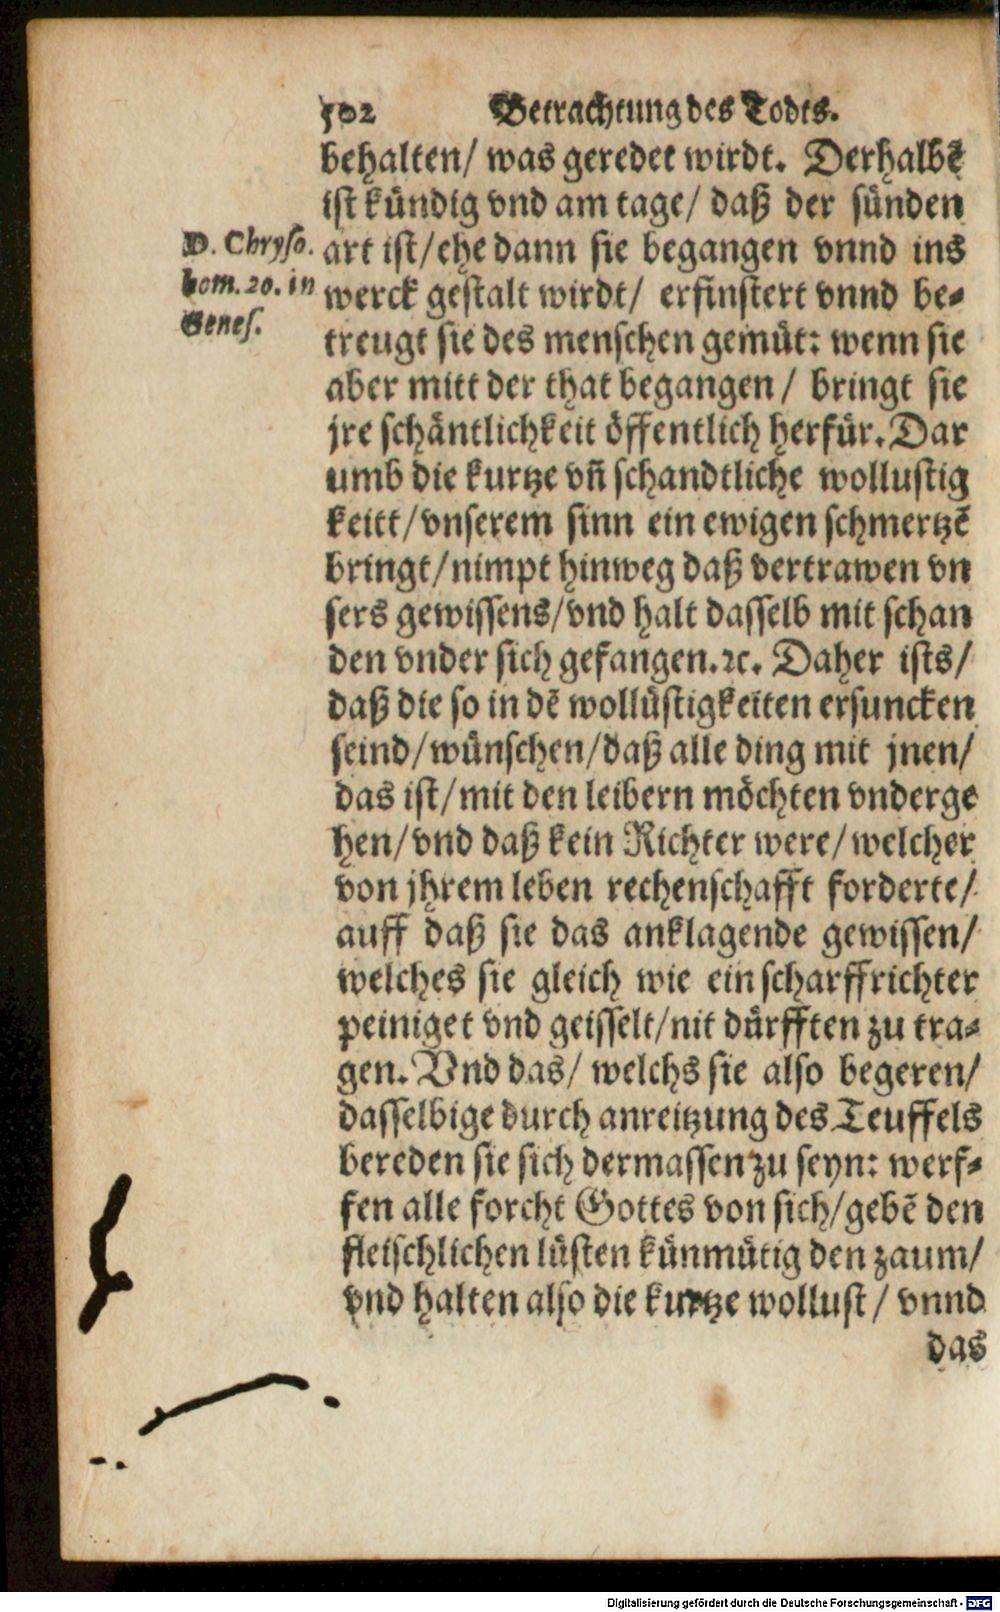 502 Betrachtung des Todts.
behalten/ was geredet wirdt. Derhalbẽ
ist kündig vnd am tage/ daß der sünden
D. Chryso.
hom. 20. in
Genes.
art ist/ ehe dann sie begangen vnnd ins
werck gestalt wirdt/ erfinstert vnnd be-
treugt sie des menschen gemüt: wenn sie
aber mitt der that begangen/ bringt sie
jre schäntlichkeit öffentlich herfür. Dar
umb die kurtze vñ schandtliche wollustig
keitt/ vnserem sinn ein ewigen schmertzẽ
bringt/ nimpt hinweg daß vertrawen vn
sers gewissens/ vnd halt dasselb mit schan
den vnder sich gefangen. ꝛc. Daher ists/
daß die so in dẽ wollüstigkeiten ersuncken
seind/ wünschen/ daß alle ding mit jnen/
das ist/ mit den leibern möchten vnderge
hen/ vnd daß kein Richter were/ welcher
von jhrem leben rechenschafft forderte/
auff daß sie das anklagende gewissen/
welches sie gleich wie ein scharffrichter
peiniget vnd geisselt/ nit dürfften zu tra-
gen. Vnd das/ welchs sie also begeren/
dasselbige durch anreitzung des Teuffels
bereden sie sich dermassen zu seyn: werf-
fen alle forcht Gottes von sich/ gebẽ den
fleischlichen lüsten künmütig den zaum/
vnd halten also die kurtze wollust/ vnnd
das
Digitalisierung gefördert durch die Deutsche Forschungsgemeinschaft - DFG